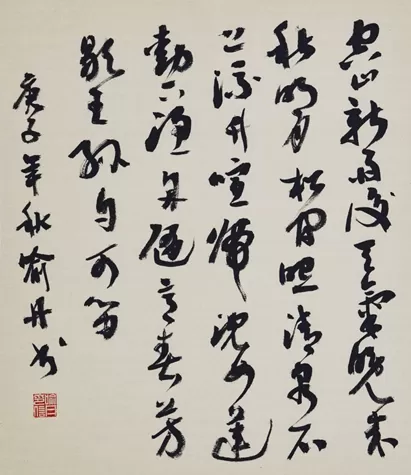 空山新雨後天氣晚來
秋明月松間照清泉石
上流竹喧歸浣女蓮
動下漁舟隨意春芳
歇王孫自可留
庚子年秋喻丹书